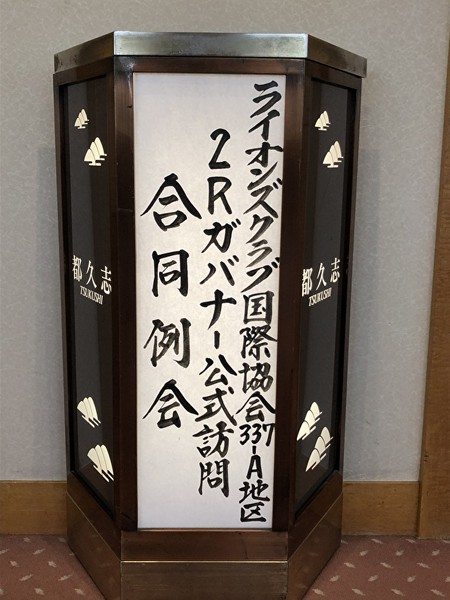 ライオンズクラブ国際協会337-A地区
2Rガバナー公式訪問
合同例会
都久志
TSUKUSHI
都久志
TSUKUSHI